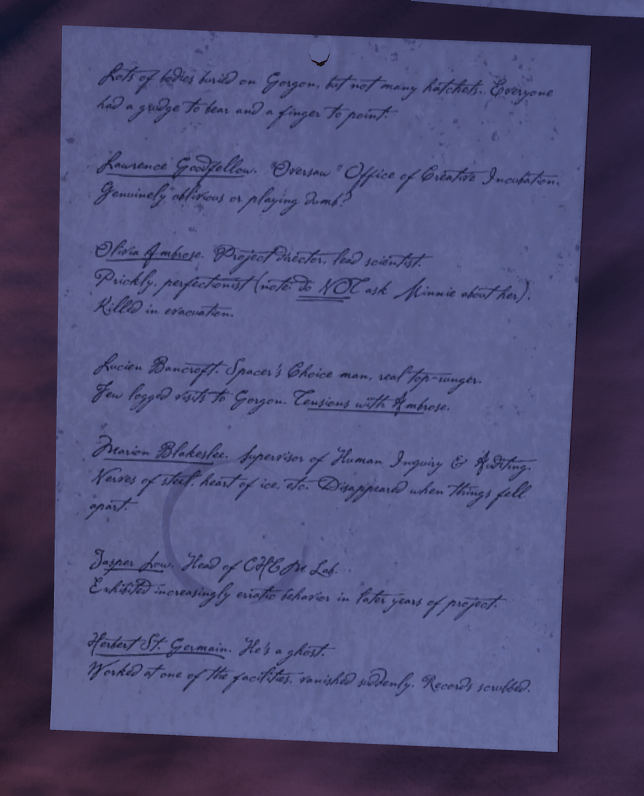 Lots of bodies buried on Gorgon, but not many hatchets. Everyone
had a grudge to bear and a finger to point.
Lawrence Goodfellow. "Oversaw" Office of Creative Incubation.
Genuinely oblivious or playing dumb?
Olivia Ambrose. Project director, lead scientist.
Prickly, perfectionist (note: do NOT ask Minnie about her).
Killed in evacuation.
Lucien Bancroft. Spacer's Choice man, real top-runger.
Few logged visits to Gorgon. Tensions with Ambrose.
Marion Blakeslee. Supervisor of Human Inquiry & Auditing.
Nerves of steel, heart of ice, etc. Disappeared when things fell
apart.
Jasper Low. Head of Lab.
Exhibited increasingly erratic behavior in later years of project.
Herbert St. Germain. He's a ghost.
Worked at one of the facilities, vanished suddenly. Records scrubbed.